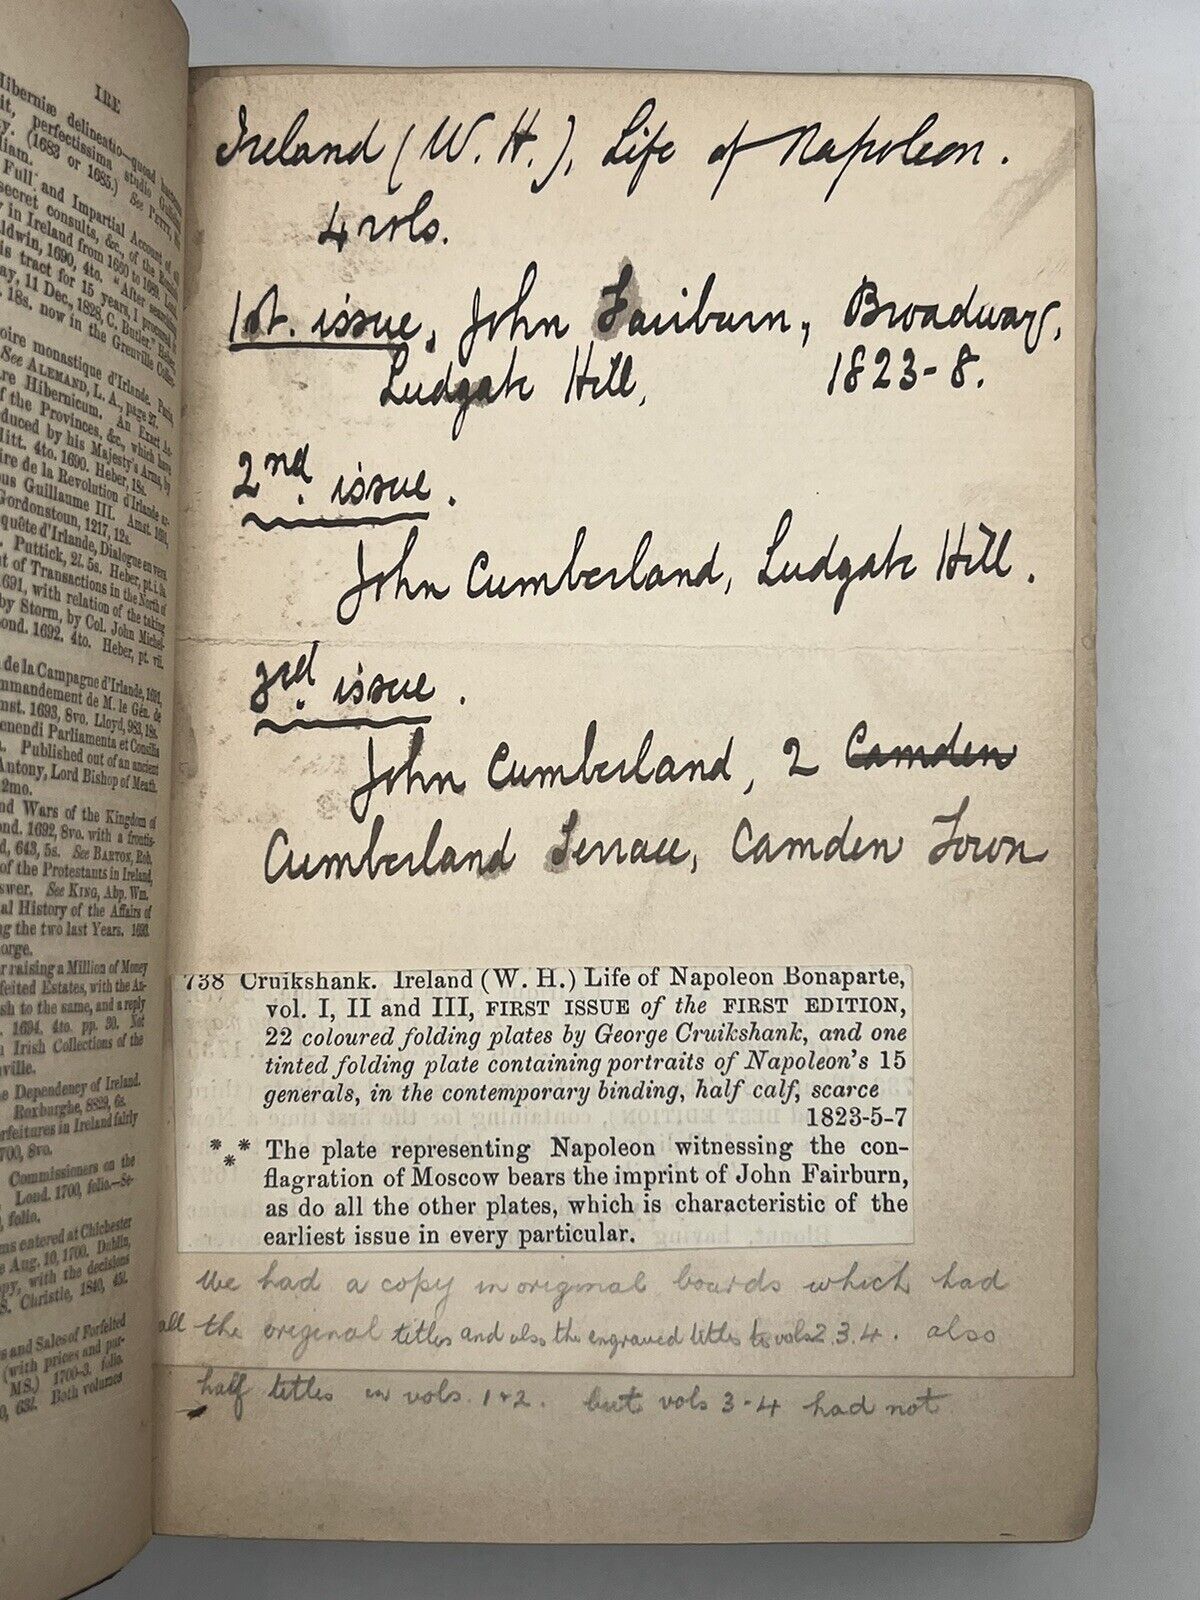 IRE
Hiberniæ delineatio—quoad
perfectissima studio
(1683 or 1685.) See PETTY,
Full and Impartial Account of
secret consults, &c., of the
in Ireland from 1660 to 1689. Lond.
1690, 4to. "After searching
tract for 15 years, I procured
11 Dec., 1828, C. Butler." Heber,
18s. now in the Grenville
monastique d'Irlande. Paris,
See ALEMAND, L. A., page 27.
Hibernicum. An Exact
of the Provinces, &c., which have
by his Majesty's Arms, by
4to. 1690. Heber, 18s.
de la Revolution d'Irlande
Guillaume III. Amst. 1691,
Gordonstoun, 1217, 12s.
d'Irlande, Dialogue en vers
Puttick, 2l. 5s. Heber, pt.
of Transactions in the North of
1691, with relation of the taking
by Storm, by Col. John
1692. 4to. Heber, pt. vii.
de la Campagne d'Irlande, 1691,
de M. le Gén. de
1693, 8vo. Lloyd, 983, 18s.
Parliamenta et Consilia
Published out of an ancient
Antony, Lord Bishop of Meath.
2mo.
nd Wars of the Kingdom of
ond. 1692, 8vo. with a
d, 643, 5s. See BARTON, Rob.
of the Protestants in Ireland,
swer. See KING, Abp. Wm.
al History of the Affairs of
ng the two last Years. 1693.
orge.
r raising a Million of Money
feited Estates, with the
sh to the same, and a reply
1694. 4to. pp. 20. Not
n Irish Collections of the
ville.
e Dependency of Ireland.
Roxburghe, 8829, 6s.
rfeitures in Ireland fairly
700, 8vo.
Commissioners on the
Lond. 1700, folio.—Se-
, folio.
ms entered at Chichester
e Aug. 10, 1700. Dublin,
py, with the decisions
S. Christie, 1840, 45l.
s and Sales of Forfeited
(with prices and pur-
MS.) 1700-3. folio.
0, 63l. Both volumes
Ireland (W. H.), Life of Napoleon.
4 vols.
1st. issue, John Fairburn, Broadway,
Ludgate Hill, 1823-8.
2nd issue.
John Cumberland, Ludgate Hill.
3rd issue.
John Cumberland, 2 Camden
Cumberland Terrace, Camden Town
738 Cruikshank. Ireland (W. H.) Life of Napoleon Bonaparte,
vol. I, II and III, FIRST ISSUE of the FIRST EDITION,
22 coloured folding plates by George Cruikshank, and one
tinted folding plate containing portraits of Napoleon's 15
generals, in the contemporary binding, half calf, scarce
1823-5-7
*** The plate representing Napoleon witnessing the con-
flagration of Moscow bears the imprint of John Fairburn,
as do all the other plates, which is characteristic of the
earliest issue in every particular.
We had a copy in original boards which had
all the original titles and also the engraved titles to vols 2.3.4. also
half titles in vols. 1 & 2. but vols 3-4 had not